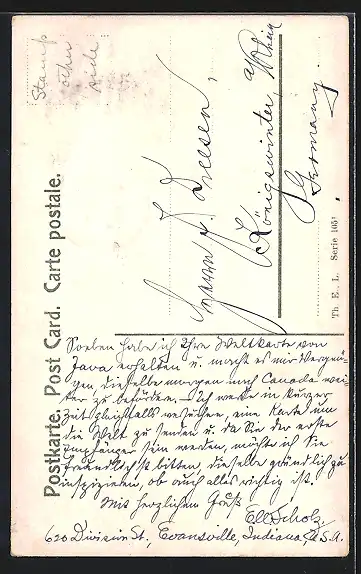 Stamp
other
side
Postkarte. Post Card. Carte postale.
Herrn J. Dreesen,
Königswinter a/Rhein
Germany.
Th. E. L. Serie 1051
Soeben habe ich Ihre Weltkarte von
Java erhalten u. macht es mir Vergnü-
gen, dieselbe morgen nach Canada wei-
ter zu befördern. Ich werde in kurzer
Zeit gleichfalls versuchen, eine Karte um
die Welt zu senden u. da Sie der erste
Empfänger sein werden, möchte ich Sie
freundlichst bitten, dieselbe gründlich zu
inspizieren, ob auch alles richtig ist.
Mit herzlichem Gruß
Ell Scholz,
620 Division St., Evansville, Indiana, U.S.A.